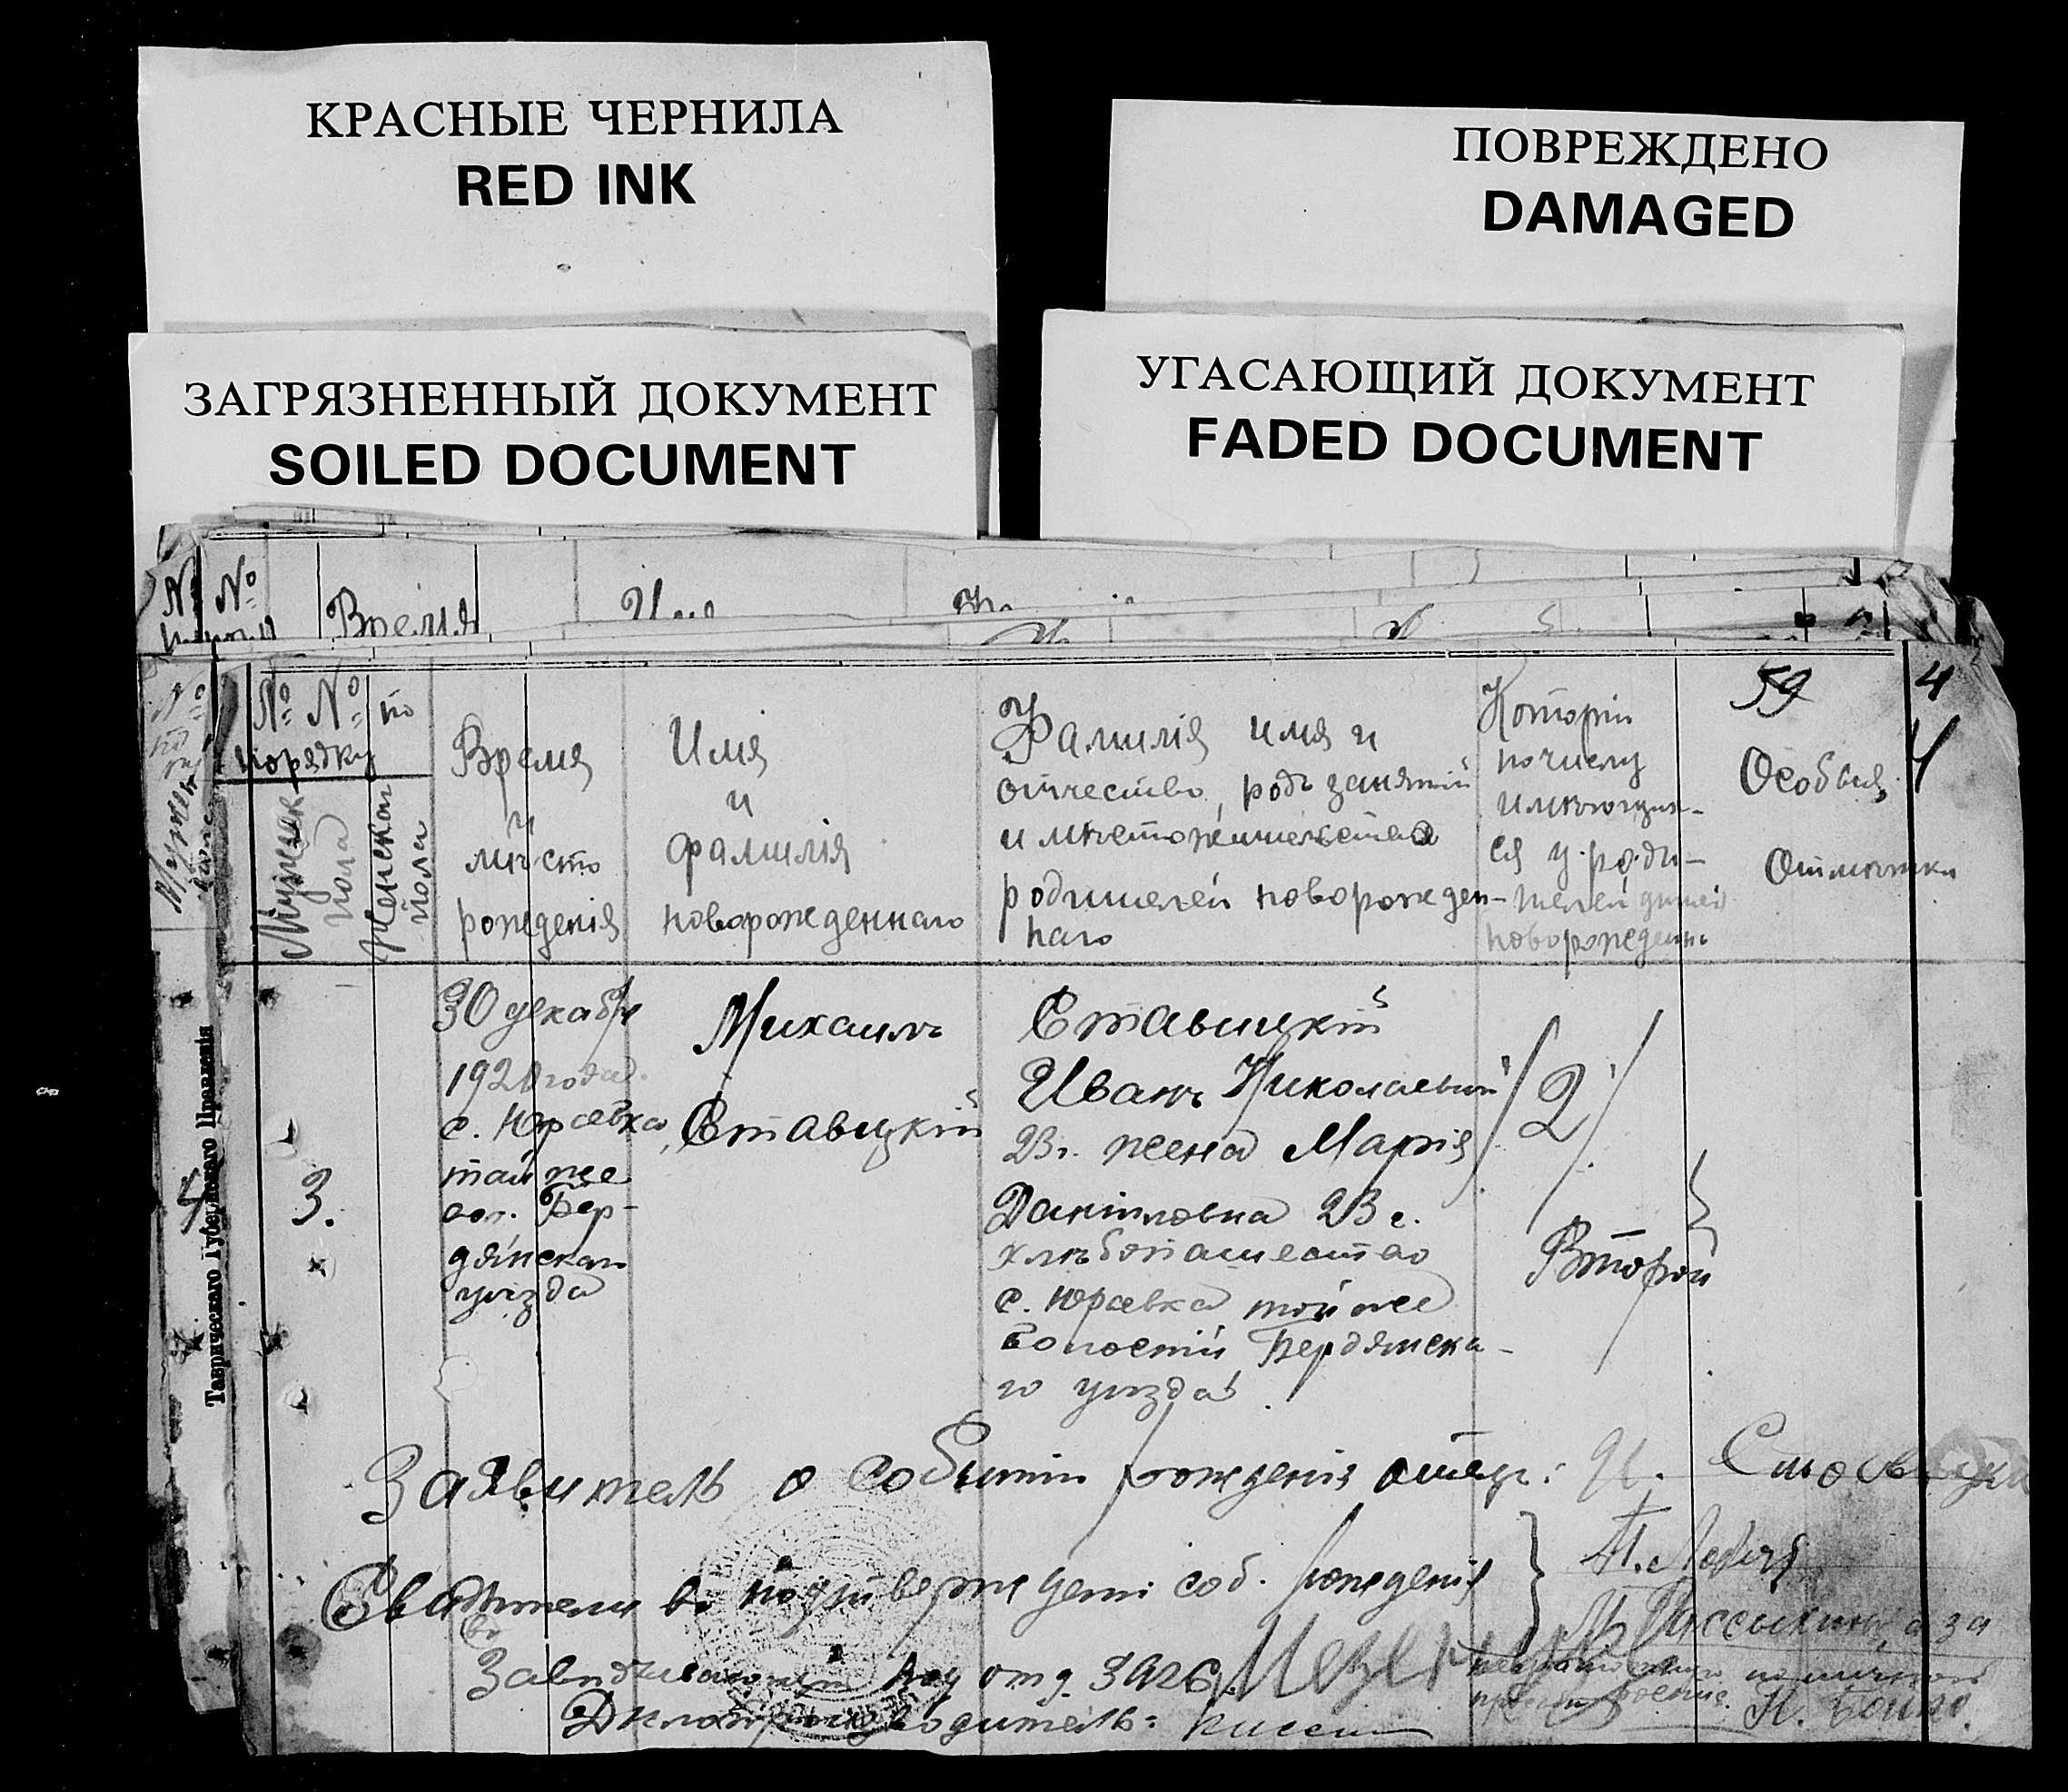 КРАСНЫЕ ЧЕРНИЛА
RED INK
ПОВРЕЖДЕНО
DAMAGED
ЗАГРЯЗНЕННЫЙ ДОКУМЕНТ
SOILED DOCUMENT
УГАСАЮЩИЙ ДОКУМЕНТ
FADED DOCUMENT
№ №
Время
59
4
№ № по
порядку
Мужская
пола
Женская
пола
Время
и
мѣсто
рожденія
Имя
и
фамилія
новорожденнаго
Фамилія имя и
отчество, родъ занятій
и мѣстожительства
родителей новорожден-
наго
Который
по числу
имѣющих-
ся у роди-
телей дитей
новорожденны
Особыя
Отмѣтки
4
3.
30 декабря
1920 года.
с. Юрѣвка
той же
вол. Бер-
дянскаго
уѣзда
Михаилъ
Ставицкій
Ставицкій
Иванъ Николаевич
23 г. жена Марія
Даніиловна 23 г.
хлѣбопашество
с. Юрѣвка той же
волости Бердянска-
го уѣзда
2
Второй
Таврическаго Губернскаго Правленія
Заявитель о событіи рожденія отецъ: И. Ставицкій
Свидѣтели въ подтвержденіи соб. рожденія
Завѣдывающій под отд. Загс
Дѣлопроизводитель: